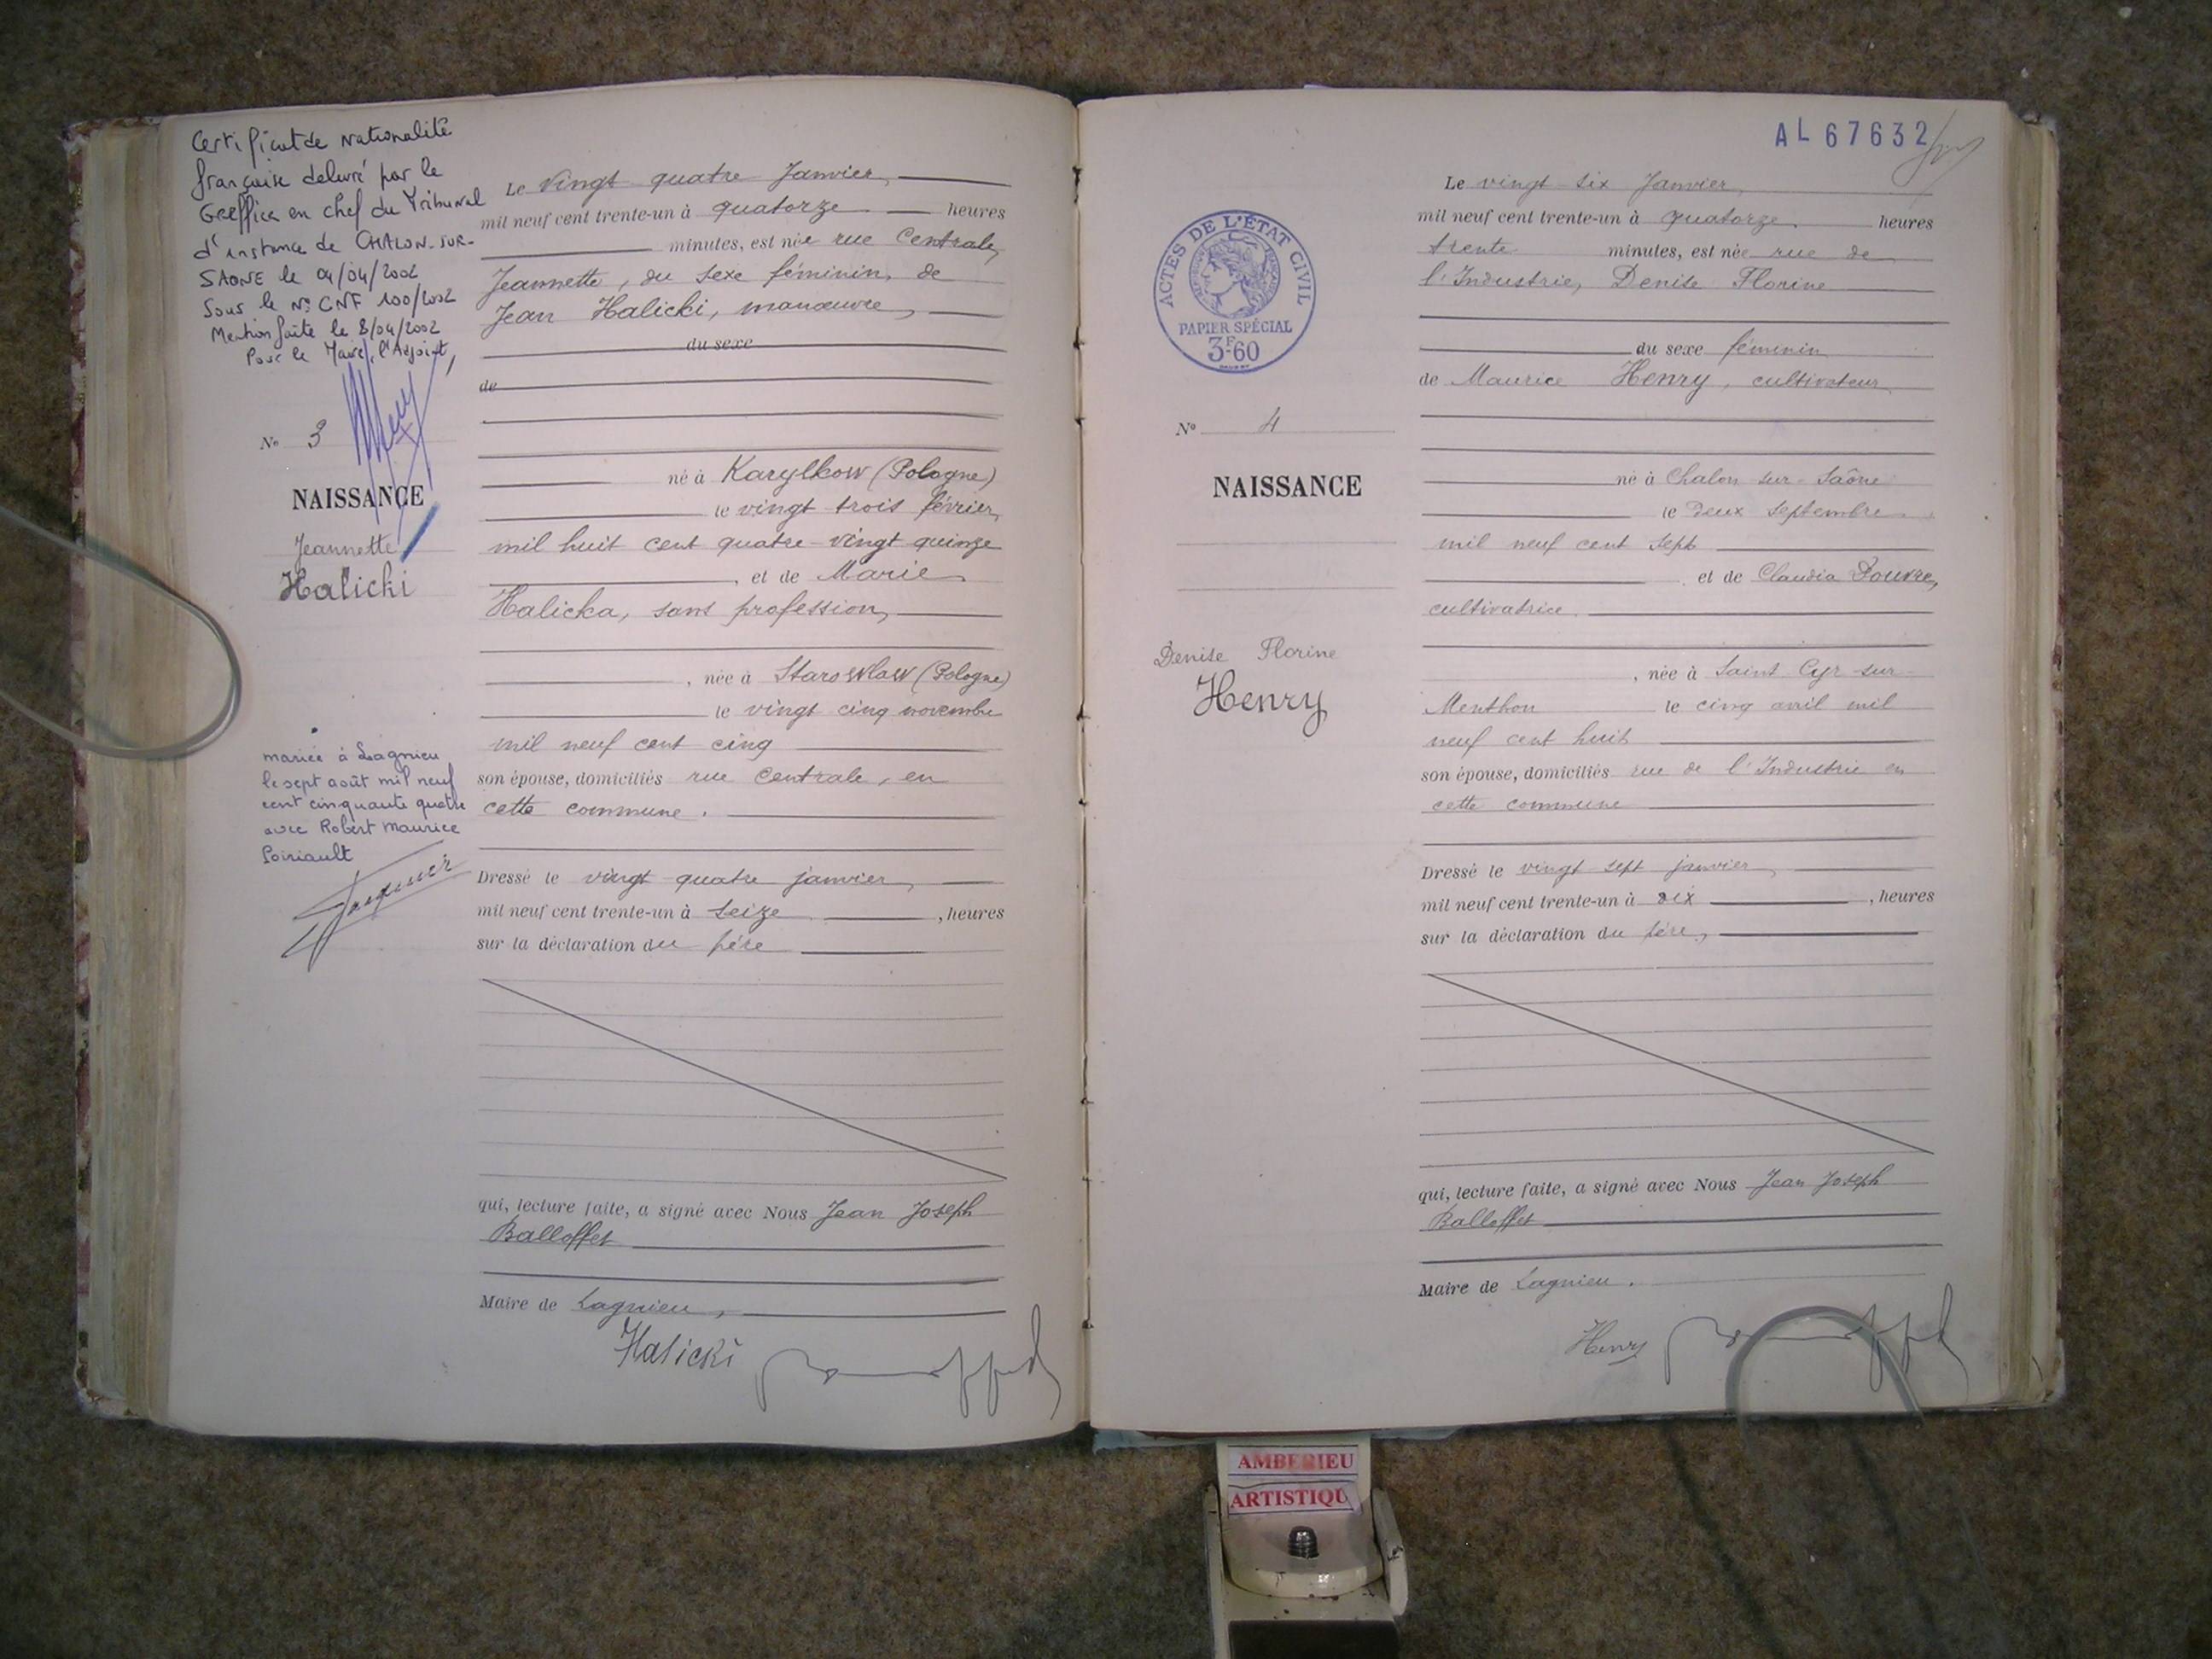 Certificat de Nationalité
française délivré par le
Greffier en chef du Tribunal
d'instance de CHALON-SUR-
SAONE le 04/04/2002
Sous le N° CNF 100/2002
Mention faite le 8/04/2002
Pour le Maire, l'Adjoint,
N° 3
NAISSANCE
Jeannette
Halicki
mariée à Lagnieu
le sept août mil neuf
cent cinquante quatre
avec Robert Maurice
Poiriault
Le vingt quatre Janvier,
mil neuf cent trente-un à quatorze heures
minutes, est née rue Centrale,
Jeannette, du sexe féminin, de
Jean Halicki, manœuvre,
du sexe
de
né à Karylkow (Pologne)
le vingt trois février
mil huit cent quatre-vingt quinze
, et de Marie
Halicka, sans profession,
, née à Starowlaw (Pologne)
le vingt cinq novembre
mil neuf cent cinq
son épouse, domiciliés rue Centrale, en
cette commune.
Dressé le vingt quatre janvier,
mil neuf cent trente-un à seize , heures
sur la déclaration du père
qui, lecture faite, a signé avec Nous Jean Joseph
Balloffet
Maire de Lagnieu,
Halicki
AL 67632
ACTES DE L'ÉTAT CIVIL
RÉPUBLIQUE FRANÇAISE
PAPIER SPÉCIAL
3F-60
N° 4
NAISSANCE
Denise Florine
Henry
Le vingt six Janvier,
mil neuf cent trente-un à quatorze heures
trente minutes, est née rue de
l'Industrie, Denise Florine
du sexe féminin
de Maurice Henry, cultivateur
né à Chalon-sur-Saône
le deux septembre
mil neuf cent sept
, et de Claudia Douvre,
cultivatrice.
, née à Saint Cyr-sur-
Menthon le cinq avril mil
neuf cent huit
son épouse, domiciliés rue de l'Industrie en
cette commune
Dressé le vingt sept janvier,
mil neuf cent trente-un à dix , heures
sur la déclaration du père,
qui, lecture faite, a signé avec Nous Jean Joseph
Balloffet
Maire de Lagnieu.
Henry
AMBERIEU
ARTISTIQU